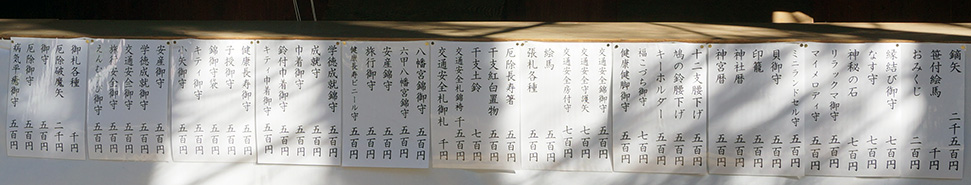 鏑矢 二千五百円
笹付絵馬 千円
おみくじ 二百円
なす守 七百円
縁結び御守 五百円
神秘の石 七百円
リラックマ御守 五百円
マイメロディ守 五百円
ミニランドセル守 五百円
貝御守 五百円
印籠 五百円
神社暦 五百円
神宮暦 五百円
十二支腰下げ 五百円
鳩の鈴腰下げ 五百円
キーホルダー 五百円
福こづち御守 五百円
健康御足腰守 五百円
交通安全御錦守 五百円
交通安全守護矢 七百円
交通安全房付守 七百円
絵馬 五百円
張札各種 五百円
厄除長寿箸 五百円
干支紅白置物 五百円
干支土鈴 七百円
交通安全札錦袴 千五百円
交通安全札御札 千円
八幡宮錦御守 五百円
六甲八幡宮錦守 五百円
安産錦守 五百円
旅行御守 五百円
健康長寿ビニール守 五百円
成就守 五百円
学徳成就錦守 五百円
巾着御守 五百円
鈴付巾着御守 五百円
キティ巾着御守 五百円
健康長寿御守 五百円
子授御守 五百円
錦御守袋 五百円
キティ御守 五百円
小矢御守 五百円
安産御守 五百円
学徳成就御守 五百円
交通安全御守 五百円
旅行安全御守 五百円
えんむすび守 五百円
御札各種 千円
厄除破魔矢 二千円
御守 五百円
厄除御守 五百円
病気平癒御守 五百円